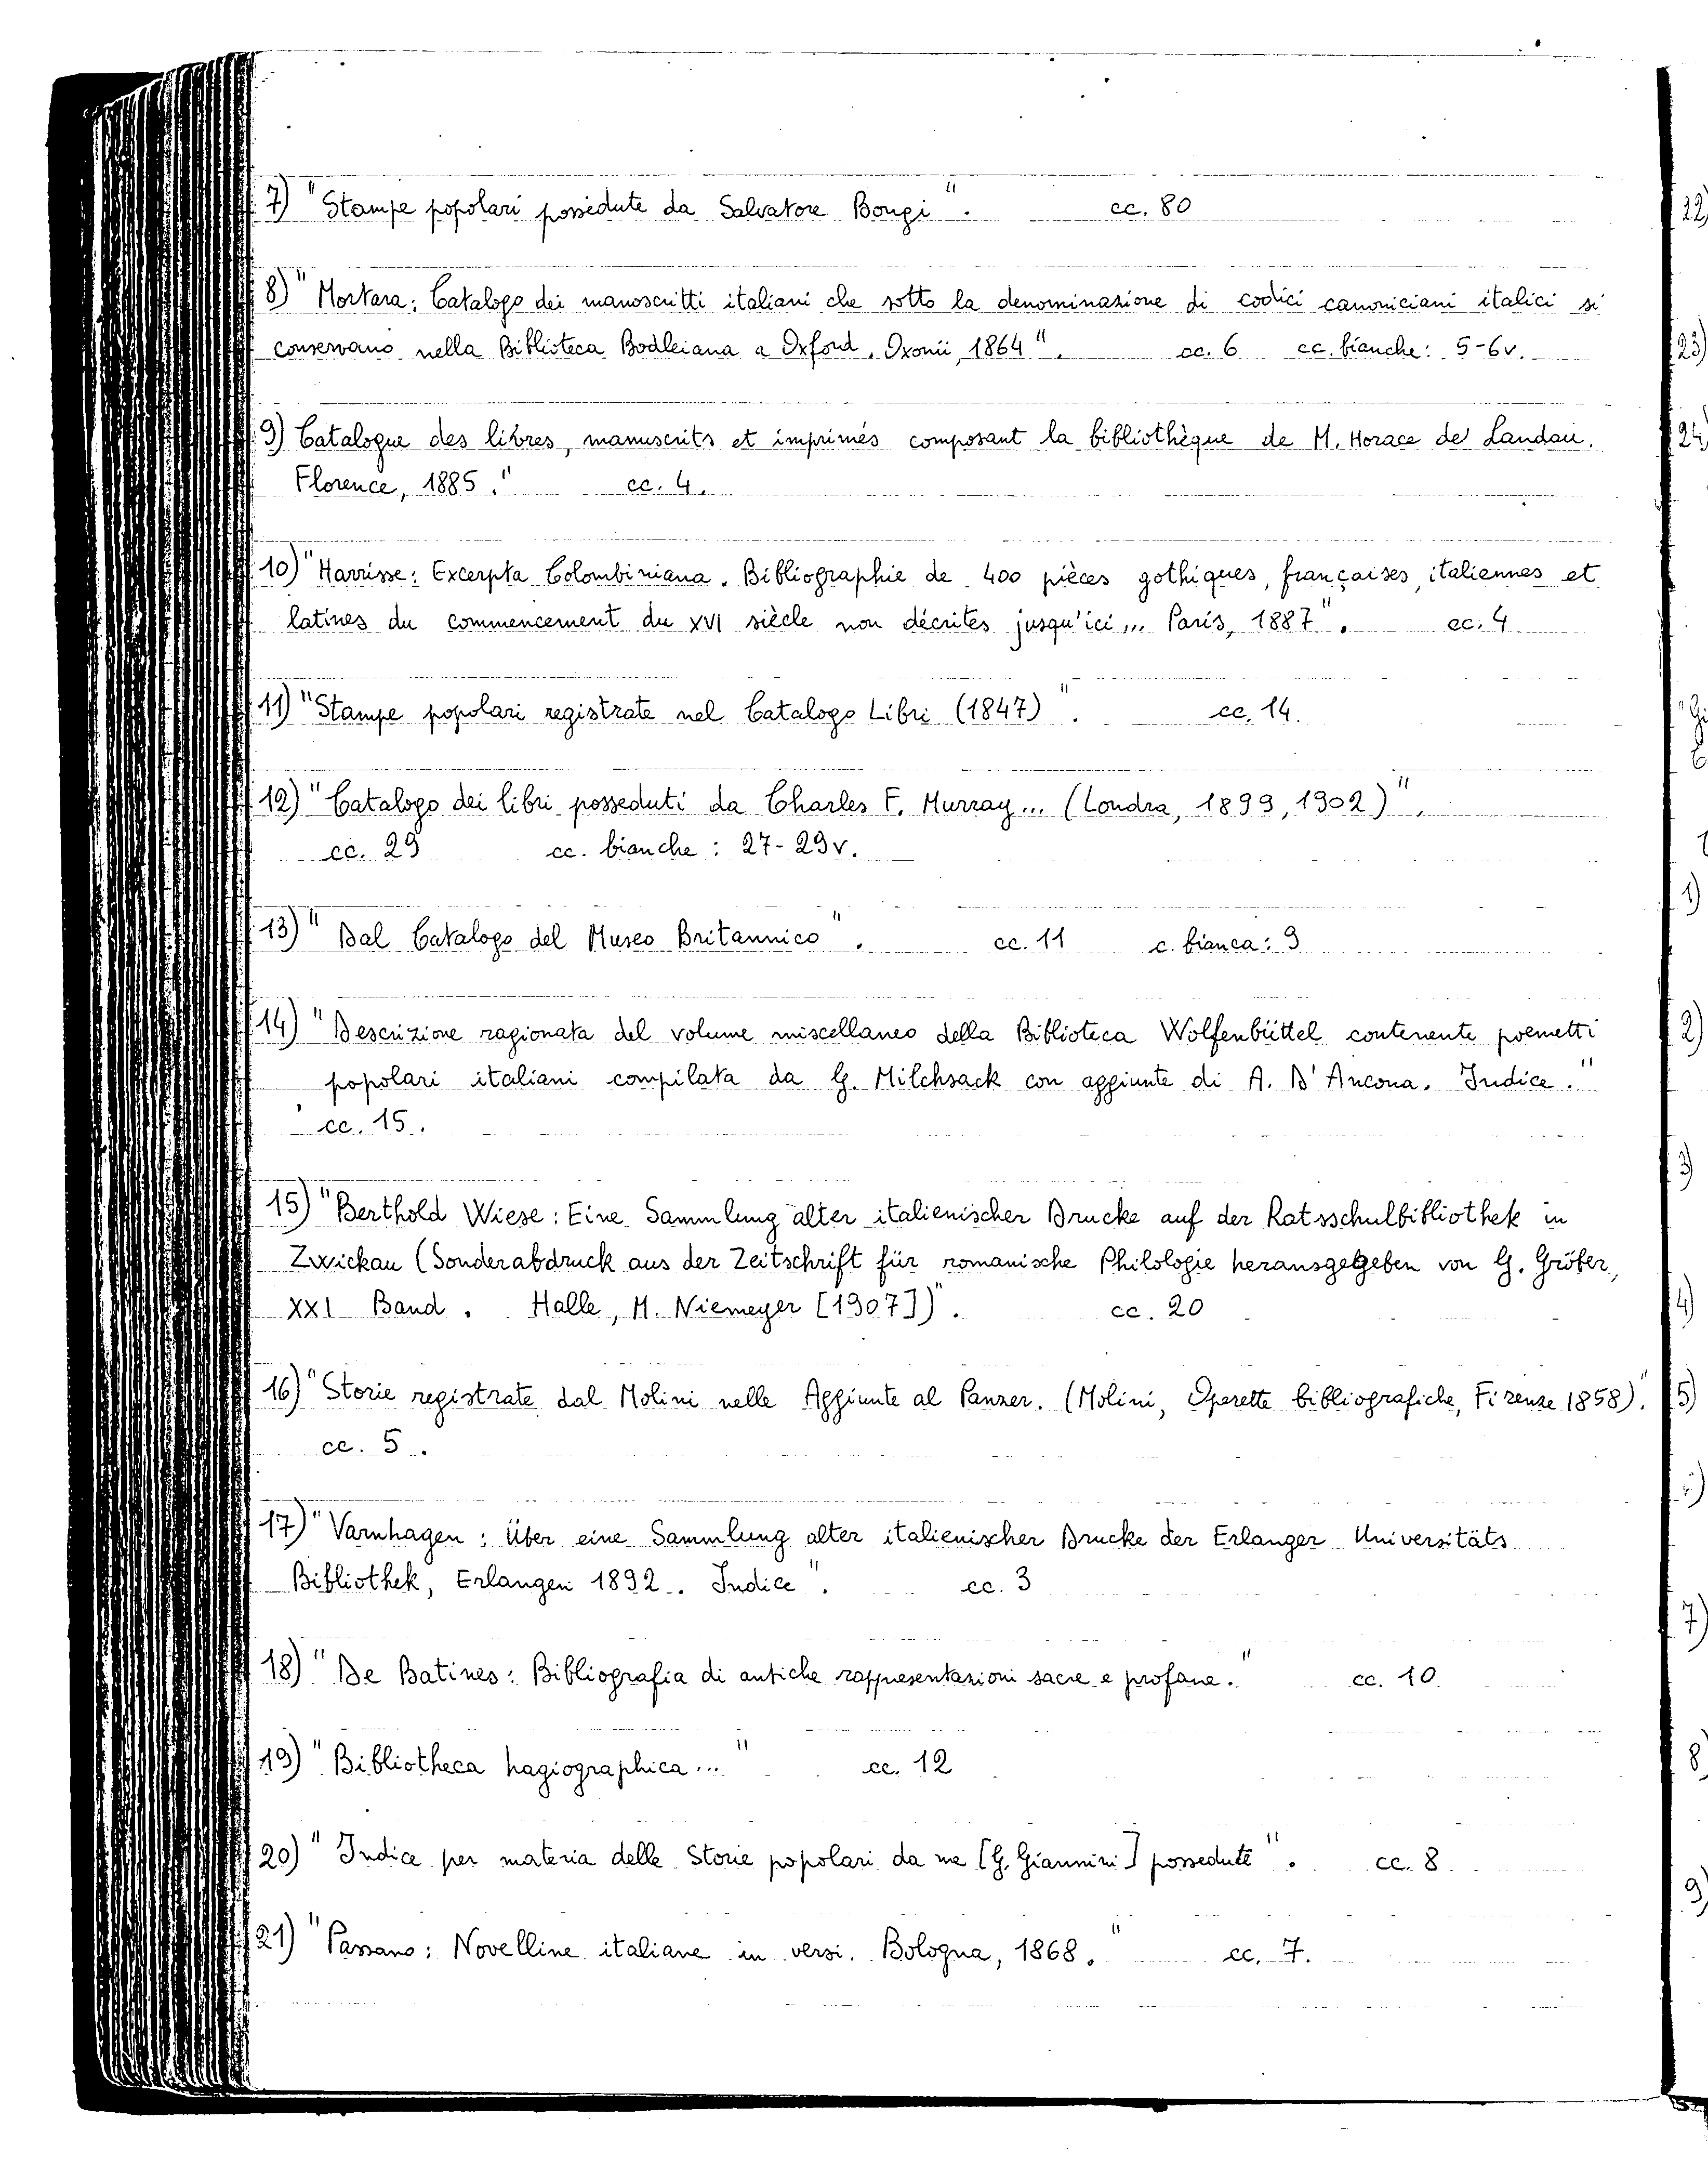 7) "Stampe popolari possedute da Salvatore Bongi". cc. 80
8) "Mortara: Catalogo dei manoscritti italiani che sotto la denominazione di codici canoniciani italici si
conservano nella Biblioteca Bodleiana a Oxford, Oxonii, 1864". cc. 6 cc. bianche: 5-6v.
9) Catalogue des libres, manuscrits et imprimés composant la bibliothèque de M. Horace de Landau.
Florence, 1885." cc. 4.
10) "Harrisse: Excerpta Colombiniana. Bibliographie de 400 pièces gothiques, françaises, italiennes et
latines du commencement du XVI siècle non décrites jusqu'ici... Paris, 1887". cc. 4
11) "Stampe popolari registrate nel Catalogo Libri (1847)". cc. 14.
12) "Catalogo dei libri posseduti da Charles F. Murray... (Londra, 1899, 1902)".
cc. 29 cc. bianche: 27-29v.
13) "Dal Catalogo del Museo Britannico". cc. 11 c. bianca: 9
14) "Descrizione ragionata del volume miscellaneo della Biblioteca Wolfenbüttel contenente poemetti
popolari italiani compilata da G. Milchsack con aggiunte di A. D'Ancona. Indice."
cc. 15.
15) "Berthold Wiese: Eine Sammlung alter italienischer Drucke auf der Ratsschulbibliothek in
Zwickau (Sonderabdruck aus der Zeitschrift für romanische Philologie herausgegeben von G. Gröber,
XXI Band. Halle, M. Niemeyer [1907])". cc. 20
16) "Storie registrate dal Molini nelle Aggiunte al Panzer. (Molini, Operette bibliografiche, Firenze 1858)".
cc. 5.
17) "Varnhagen: Über eine Sammlung alter italienischer Drucke der Erlanger Universitäts
Bibliothek, Erlangen 1892. Indice". cc. 3
18) "De Batines: Bibliografia di antiche rappresentazioni sacre e profane." cc. 10
19) "Bibliotheca hagiographica..." cc. 12
20) "Indice per materia delle Storie popolari da me [G. Giannini] possedute". cc. 8
21) "Passano: Novelline italiane in versi. Bologna, 1868." cc. 7.
22)
23)
24
1)
2)
3)
4)
5)
7)
8)
9)